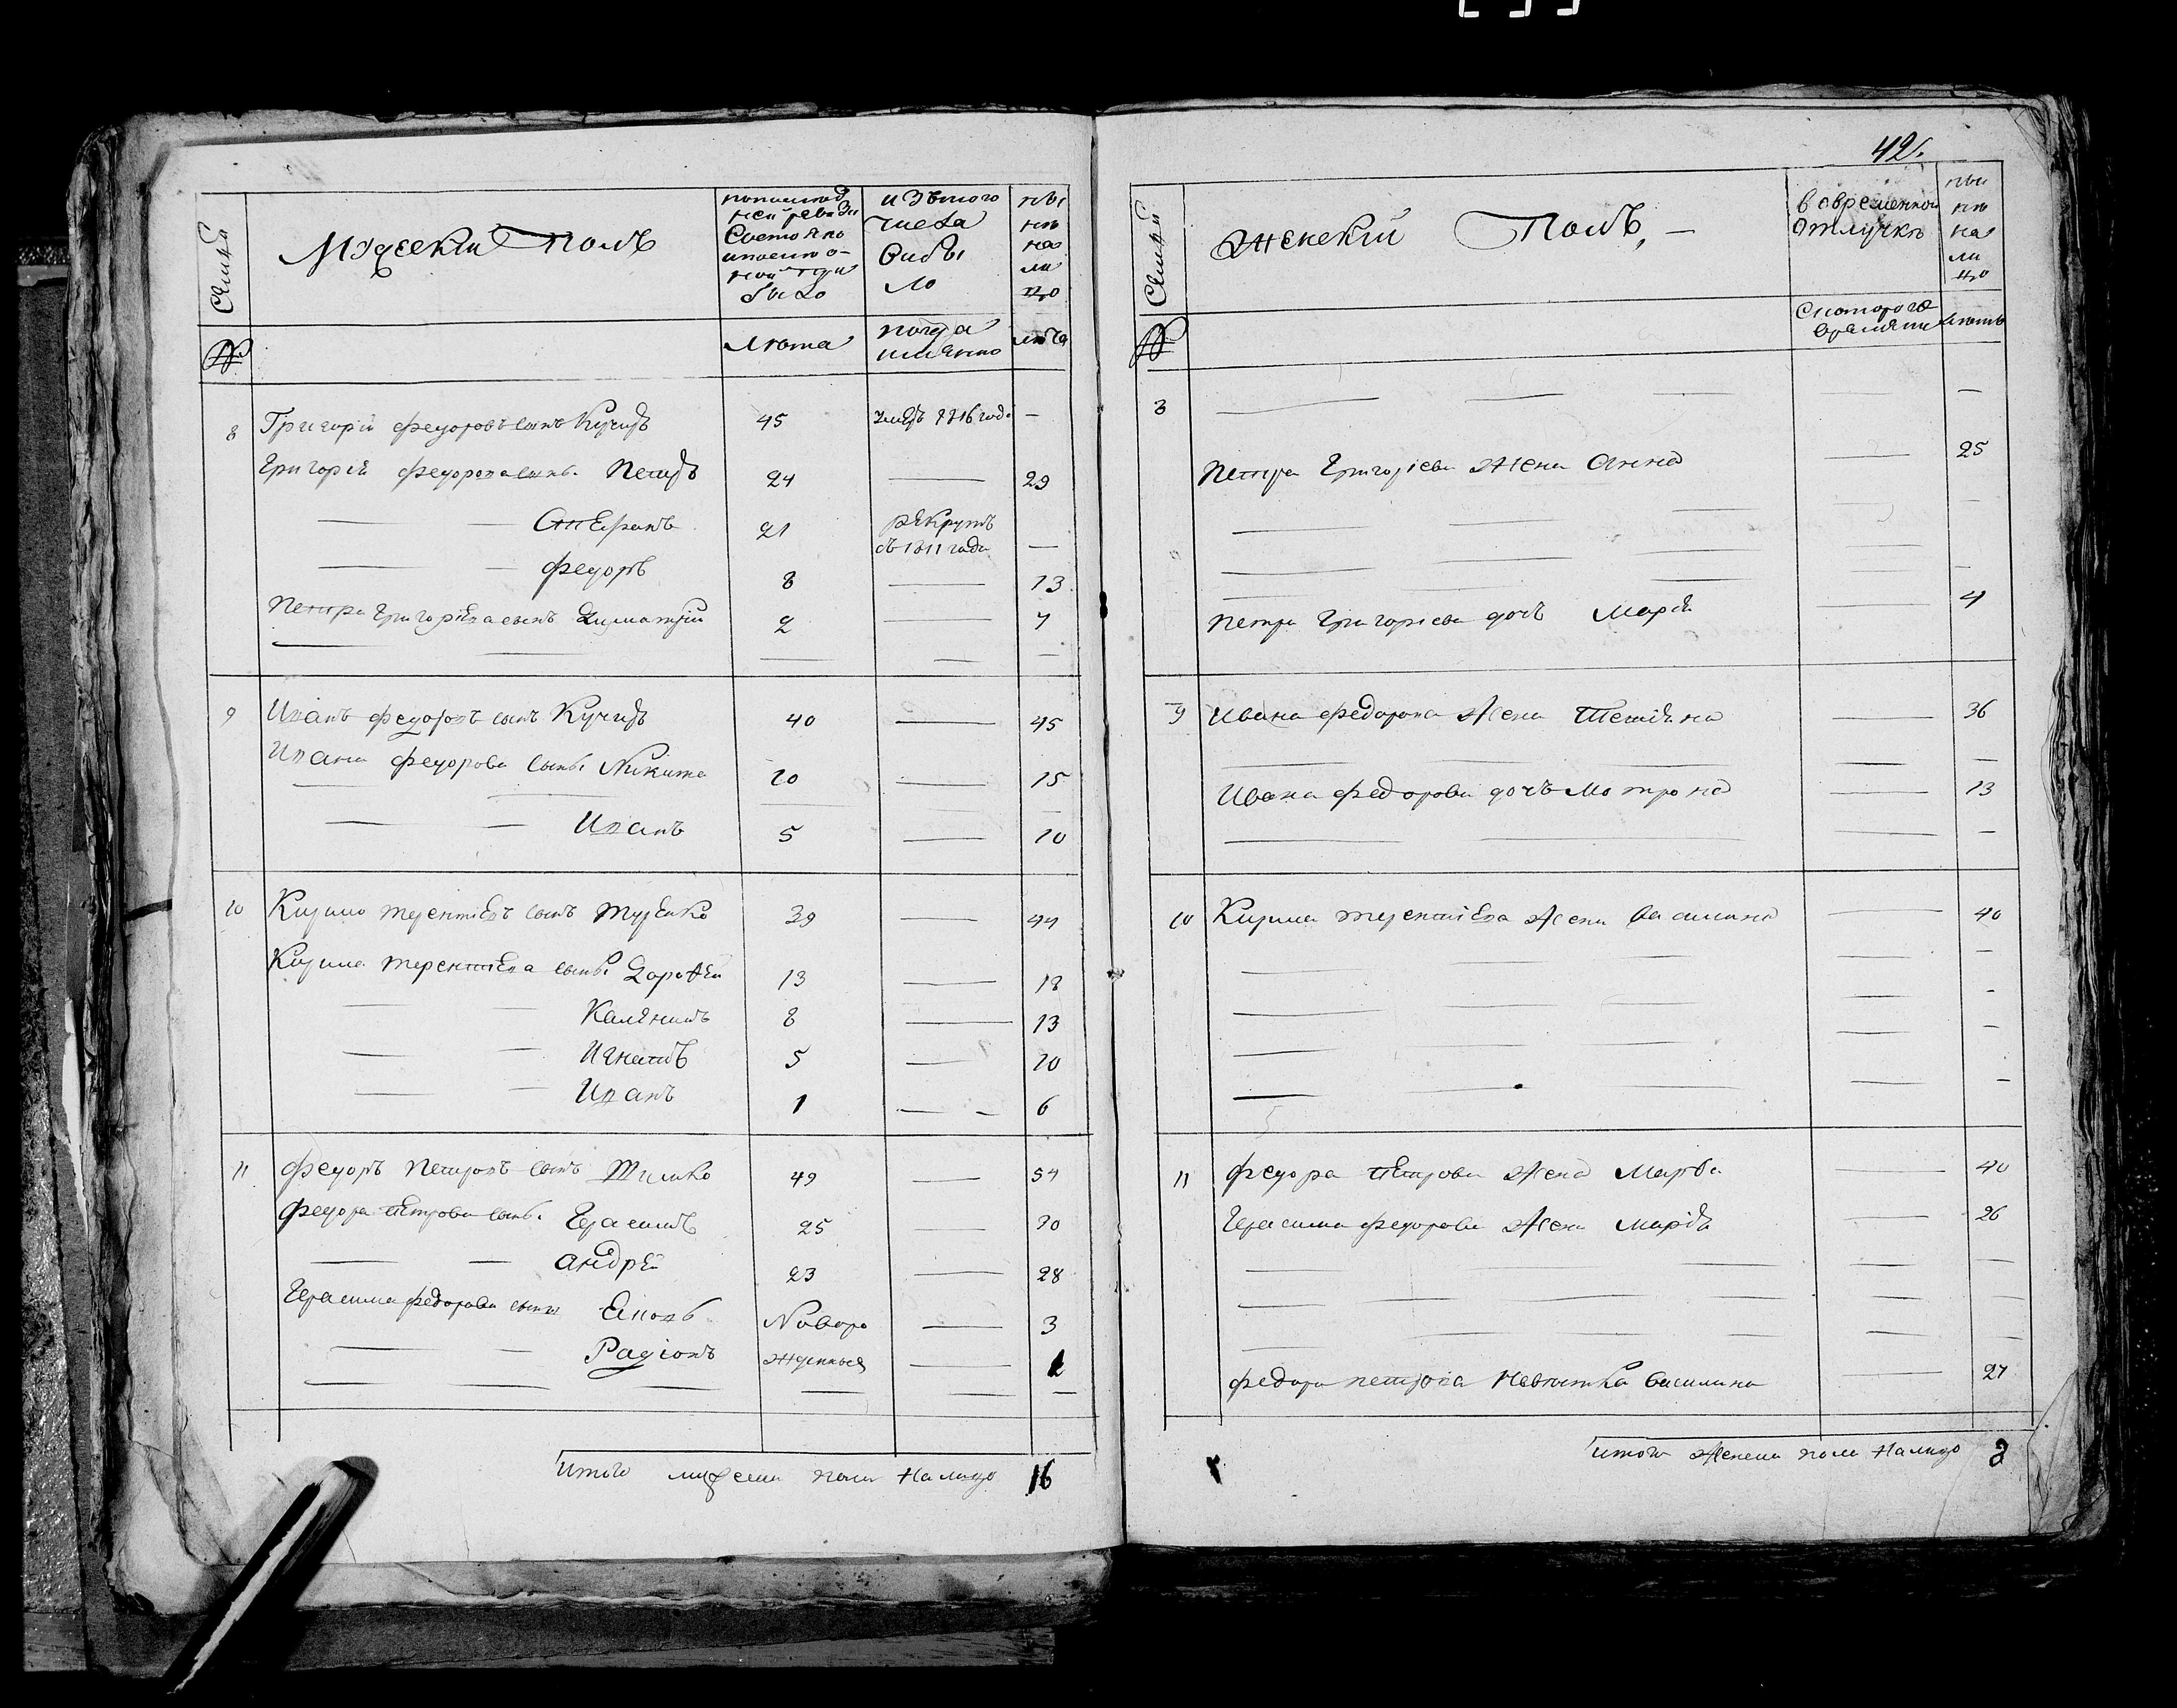 42.
Семьи
Мужеский полъ
по последней ревизии состояло и после оной прибыло
изъ того числа выбыло
ныне на лицо
№
лета
когда имянно
лета
8 Григорій Федоровъ сынъ Кучеръ 45 умеръ 1816 год. —
Григорія Федорова сынъ. Петръ 24 — 29
— — Стефанъ 21 рекрутъ съ 1811 года —
— — Федоръ 8 — 13
Петра Григорьева сынъ Димитрій 2 — 7
9 Иванъ Федоровъ сынъ Кучеръ 40 — 45
Ивана Федорова сынъ Никита 10 — 15
— — Иванъ 5 — 10
10 Кирило Терентіевъ сынъ 39 — 44
Кирила Терентіева сынъ Дорофей 13 — 18
— — Каленикъ 8 — 13
— — Игнатъ 5 — 10
— — Иванъ 1 — — 6
11 Федоръ Петровъ сынъ Тимко 49 — 54
Федора Петрова сынъ. Герасимъ 25 — 30
— — Андрей 23 — 28
Герасима Федорова сынъ Новоро — 3
— — Радіонъ жденныя —
Итого мужеска пола налицо 16
Семьи
Женскій Полъ, —
во временной отлучке
ныне на лицо
№
с которого времяни
летъ
8 — — — — —
Петра Григоріева жена Анна — 25
Петра Григоріева дочь Марія — 4
9 Ивана Федорова жена Тетіяна — 36
Ивана Федорова дочь Мотрона — 13
10 Кирила Терентіева жена Василина — 40
11 Федора Петрова жена Марфа — 40
Герасима Федорова жена Марія — 26
Федора Петрова невестка Василина — 27
Итого женска пола налицо 8